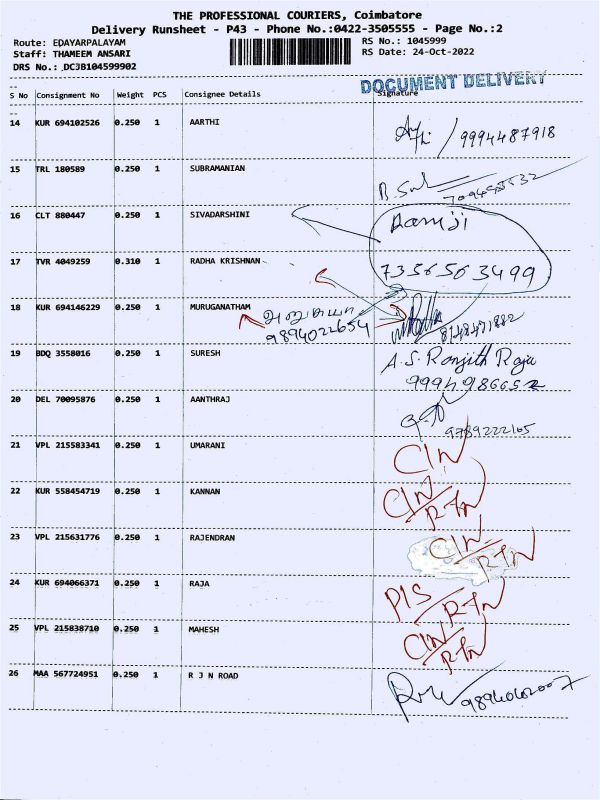 THE PROFESSIONAL COURIERS, Coimbatore
Delivery Runsheet - P43 - Phone No.:0422-3505555 - Page No.:2
Route: EDAYARPALAYAM RS No.: 1045999
Staff: THAMEEM ANSARI RS Date: 24-Oct-2022
DRS No.: DCJB104599902
DOCUMENT DELIVERY
S No Consignment No Weight PCS Consignee Details Signature
14 KUR 694102526 0.250 1 AARTHI 9994487918
15 TRL 180589 0.250 1 SUBRAMANIAN
16 CLT 880447 0.250 1 SIVADARSHINI Ramji
17 TVR 4049259 0.310 1 RADHA KRISHNAN 7356563499
18 KUR 694146229 0.250 1 MURUGANATHAM
9894022654
19 BDQ 3558016 0.250 1 SURESH A.S. Ranjith Raja
20 DEL 70095876 0.250 1 AANTHRAJ
9789222165
21 VPL 215583341 0.250 1 UMARANI CIN
22 KUR 558454719 0.250 1 KANNAN CIN/RTN
23 VPL 215631776 0.250 1 RAJENDRAN CIN/RTN
24 KUR 694066371 0.250 1 RAJA PIS/RTN
25 VPL 215838710 0.250 1 MAHESH CIN/RTN
26 MAA 567724951 0.250 1 R J N ROAD